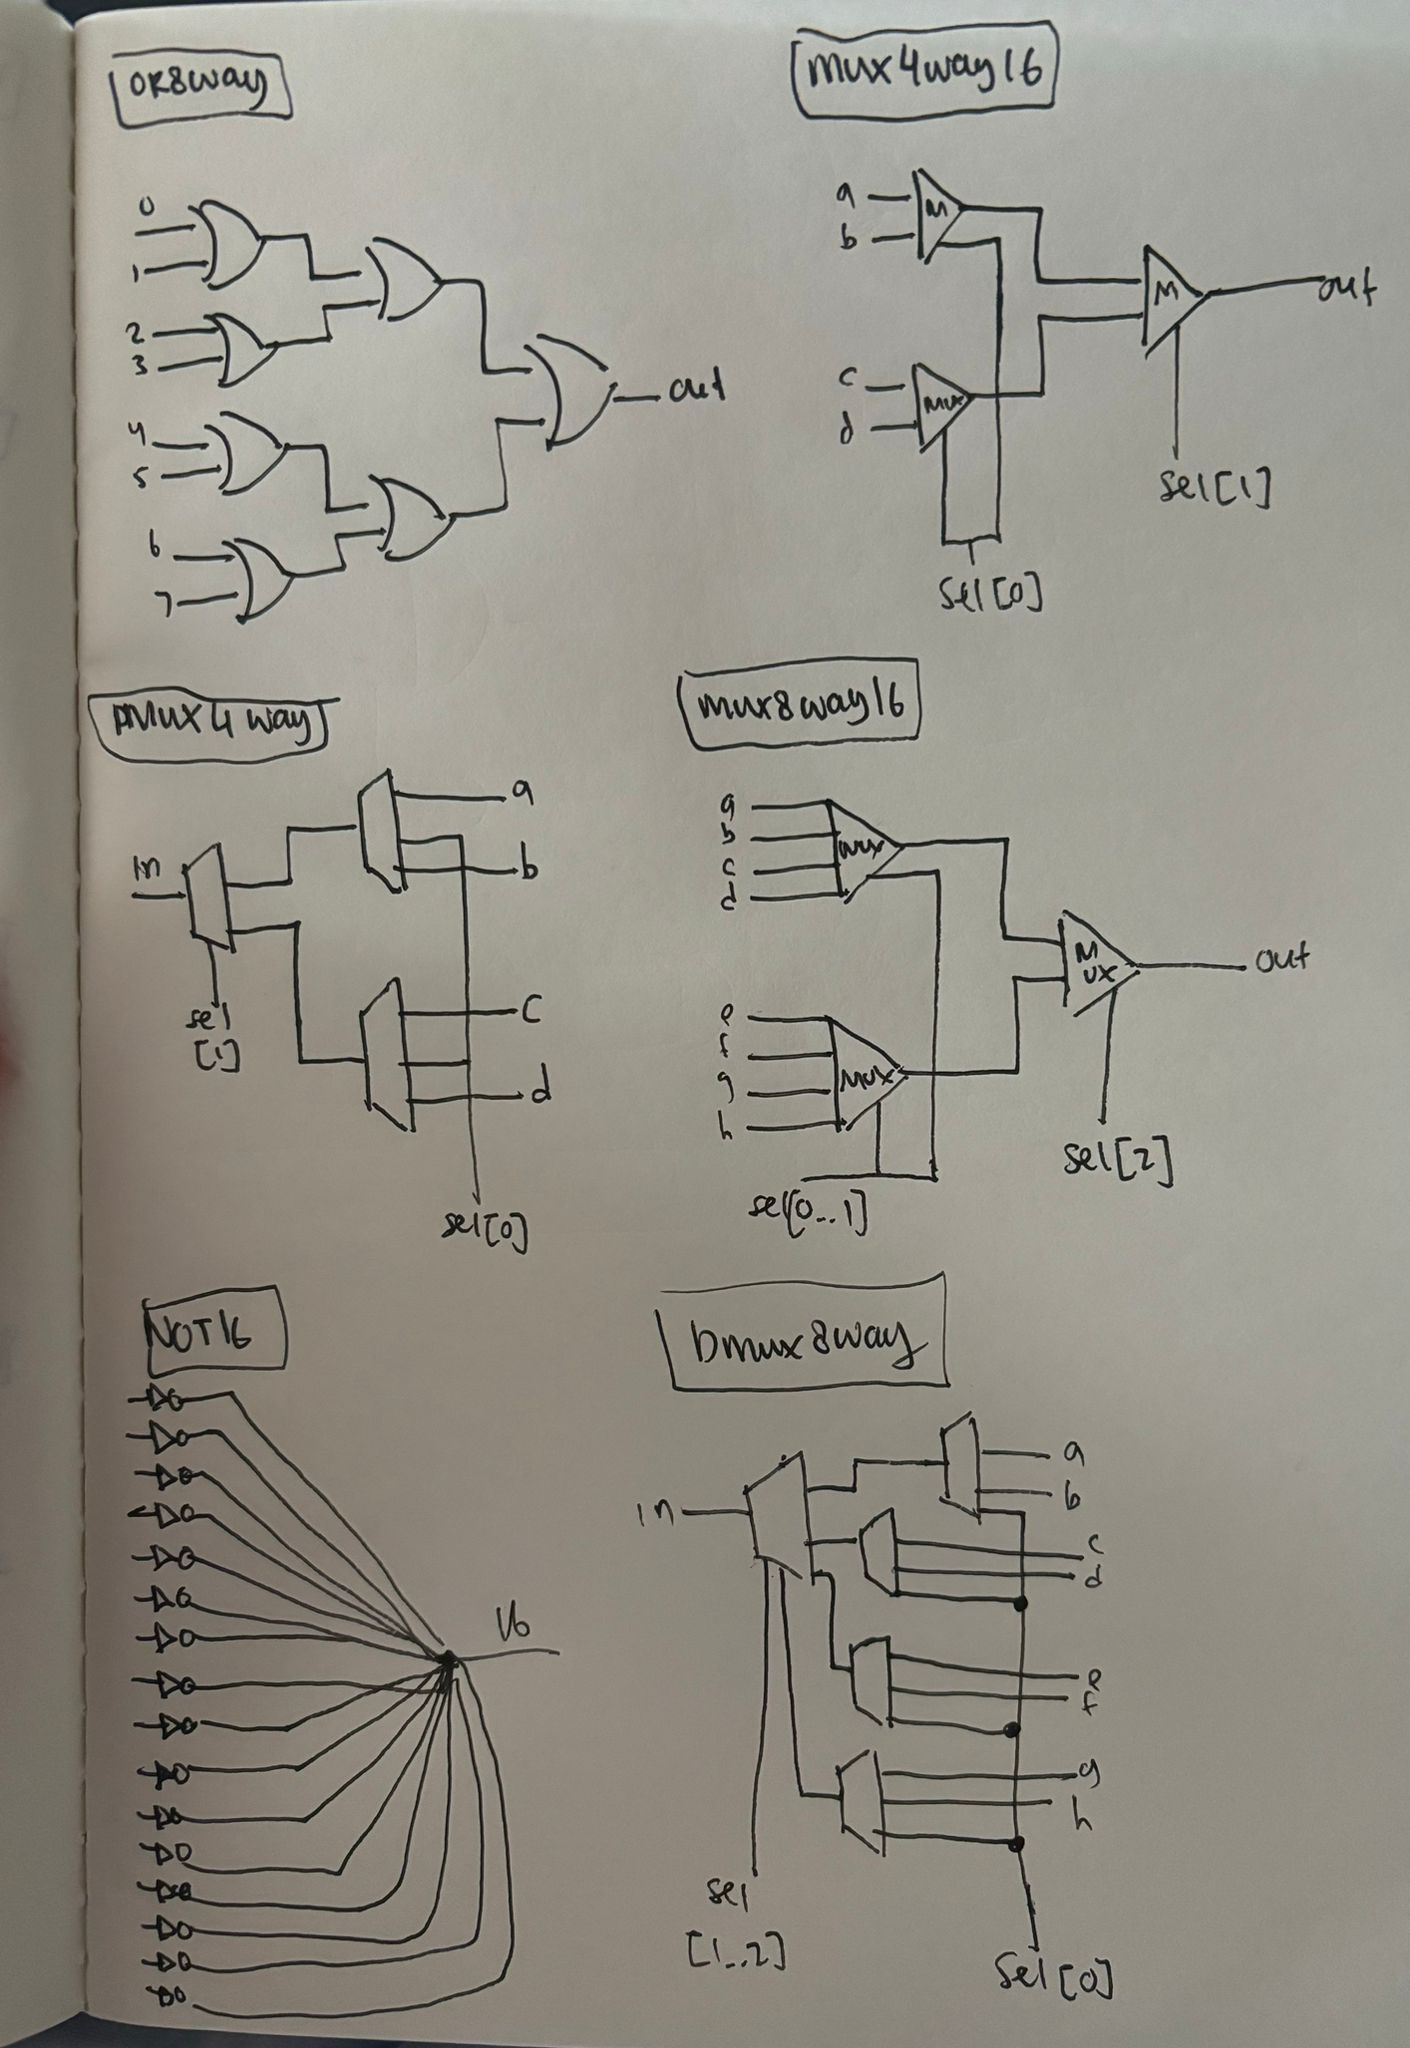 OR8way
0
1
2
3
4
5
6
7
out
Mux4way16
a
b
M
c
d
MUX
M
out
sel[1]
sel[0]
DMUX4way
in
sel
[1]
a
b
c
d
sel[0]
mux8way16
a
b
c
d
mux
e
f
g
h
MUX
M
UX
out
sel[2]
sel[0..1]
NOT16
16
Dmux8way
in
a
b
c
d
e
f
g
h
sel
[1..2]
sel[0]